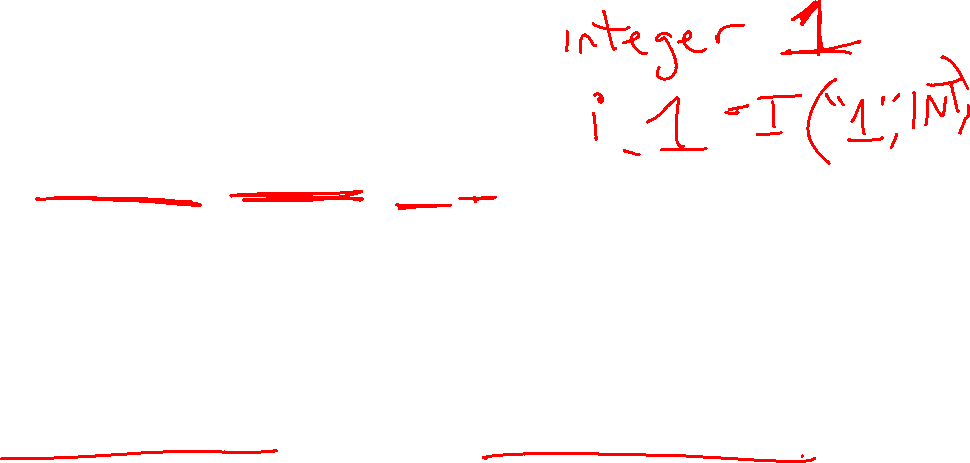 integer 1
i_1 = I("1", INT)